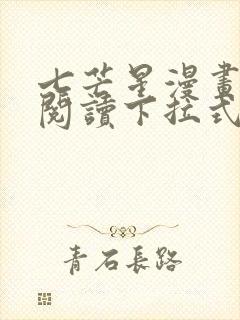 七芒星漫畫
閱讀下拉式
青石長路